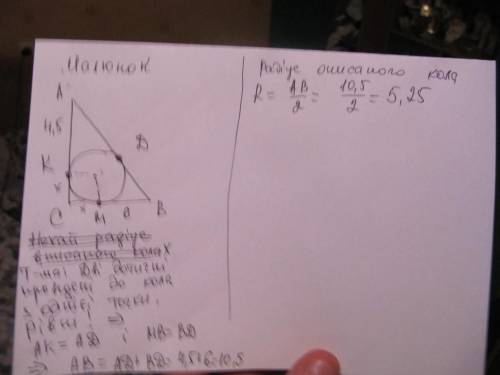 Малюнок
A
4,5
D
K
x
C x M 6 B
Нехай радіус
вписаного кола x
дві дотичні
проведені до кола
з однієї точки,
рівні ⇒
AK = AD і MB = BD
⇒ AB = AD + BD = 4,5 + 6 = 10,5
Радіус описаного кола
R = AB/2 = 10,5/2 = 5,25